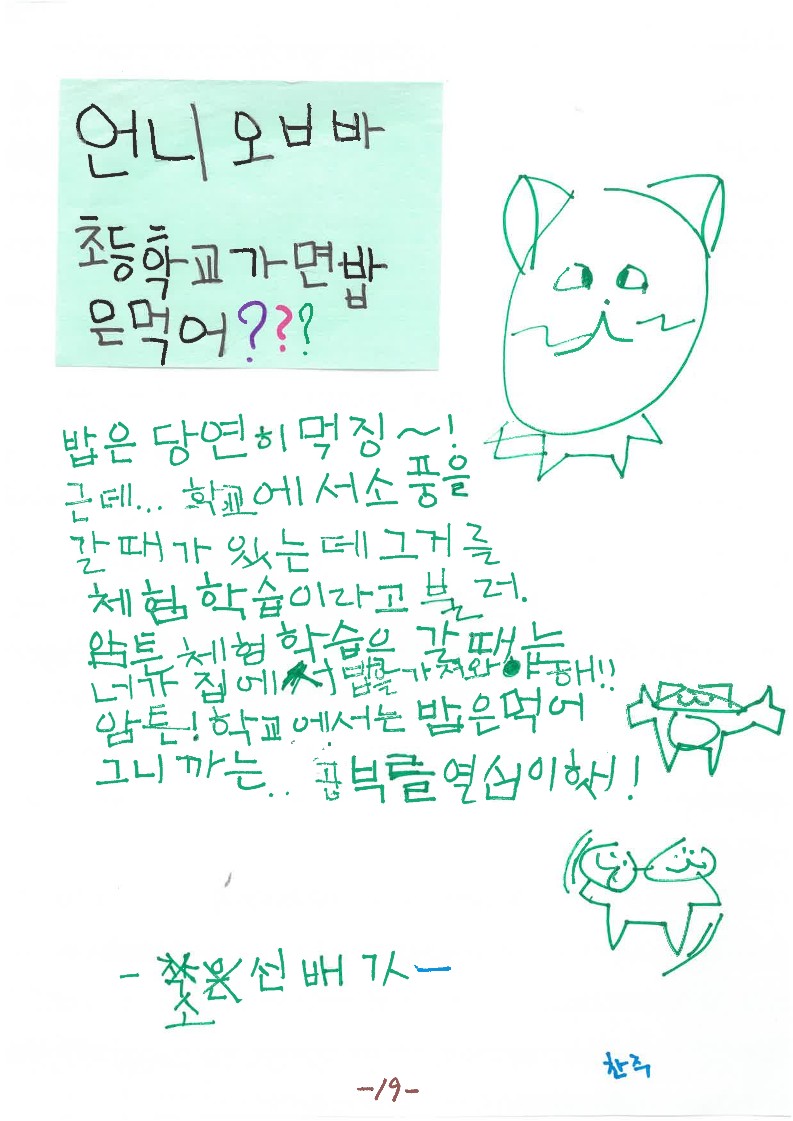 언니 오ㅂ바
초등학교가면밥
은먹어???
밥은 당연히 먹징~!
근데... 학교에서소풍을
갈때가 있는데그거를
체험학습이라고 불러.
암튼 체험학습은 갈때는
너가 집에서 밥을가져와야해!!
암튼! 학교에서는 밥은먹어
그니까는..
열심이해!
선배가
-19-
찬주